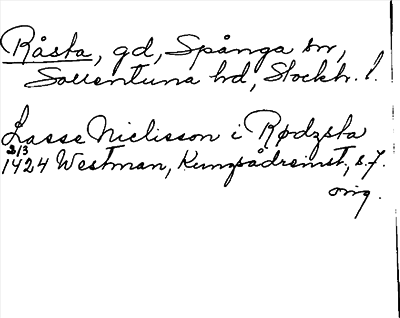 Råsta, gd, Spånga sn,
Sollentuna hd, Stockh. l.
Lasse Nielisson i Rødzsta
3/3
1424 Westman, Kungsådreinst., s. 7.
orig.